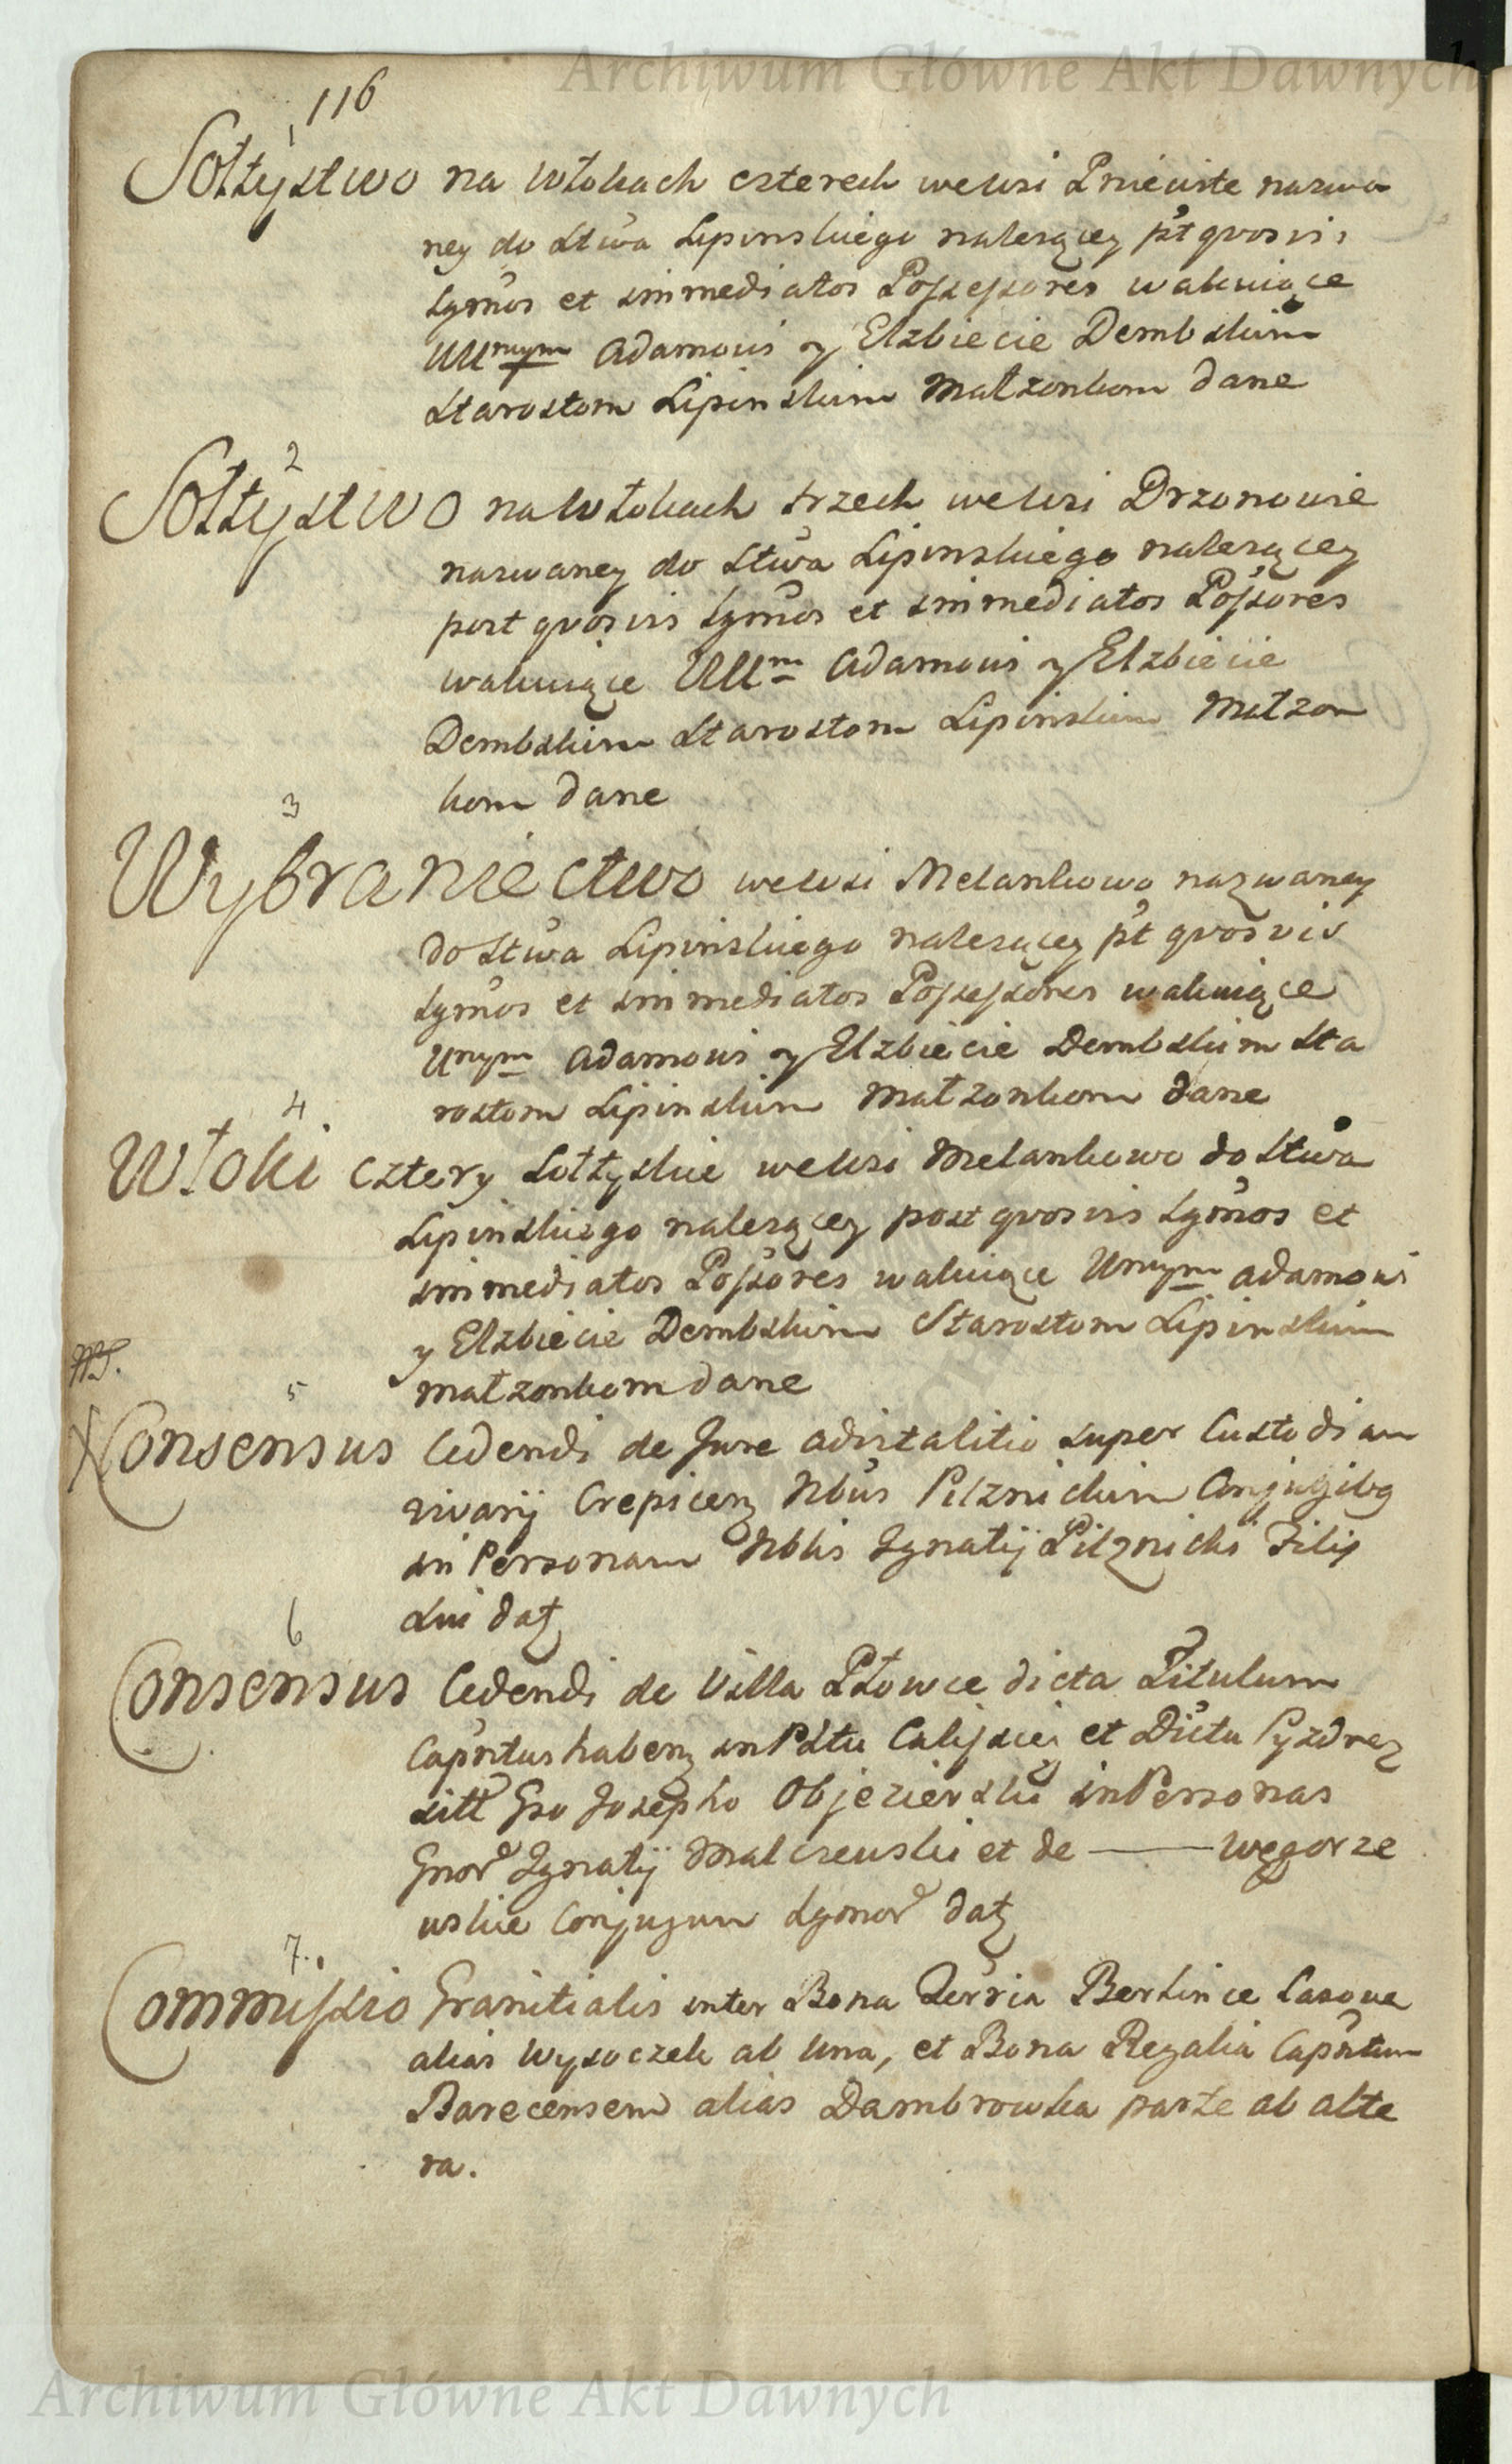 Archiwum Główne Akt Dawnych
116
1
Sołtystwo na Włokach czterech wewsi Pniewite nazwa
ney do Stwa Lipinskiego nalezącey pt qvosvis
Lgmos et immediatos Possessores wakuiące
UUrnym Adamowi y Elzbiecie Dembskim
Starostom Lipinskim Małzonkom dane
2
Sołtystwo na Włokach trzech wewsi Drzonowie
nazwaney do Stwa Lipinskiego nalezącey
post qvosvis Lgmos et immediatos Possores
wakuiące UUm Adamowi y Elzbiecie
Dembskim Starostom Lipinskim Małzon
kom dane
3
Wybraniectwo wewsi Melankowo nazwaney
do Stwa Lipinskiego nalezącey pt qvosvis
Lgmos et immediatos Possessores wakuiące
Urnym Adamowi y Elzbiecie Dembskim Sta
rostom Lipinskim Małzonkom dane
4
Włoki cztery Sołtyskie wewsi Melankowo do Stwa
Lipinskiego nalezącey post qvosvis Lgmos et
immediatos Possores wakuiące Urnym Adamowi
y Elzbiecie Dembskim Starostom Lipinskim
Małzonkom dane
5
Consensus Cedendi de Jure advitalitio super Custodiam
vivarij Crepicen Nbus Pilznickim Conjugibq
in Personam Nblis Ignatij Pilznicki Filij
sui dat
6
Consensus Cedendi de Villa Płowce dicta Titulum
Capntus haben in Pdtu Calissien et Dictu Pyzdren
sitt Gso Josepho Objezierski in Personas
Gnor Ignatij Malczewski et de —— Węgorze
wskie Conjugum Lgmor dat
7.
Commissio Granitialis inter Bona Terria Berlince Lasowe
alias Wysoczek ab Una, et Bona Regalia Capntum
Barecensem alias Dambrowka parte ab alte
ra.
Archiwum Główne Akt Dawnych